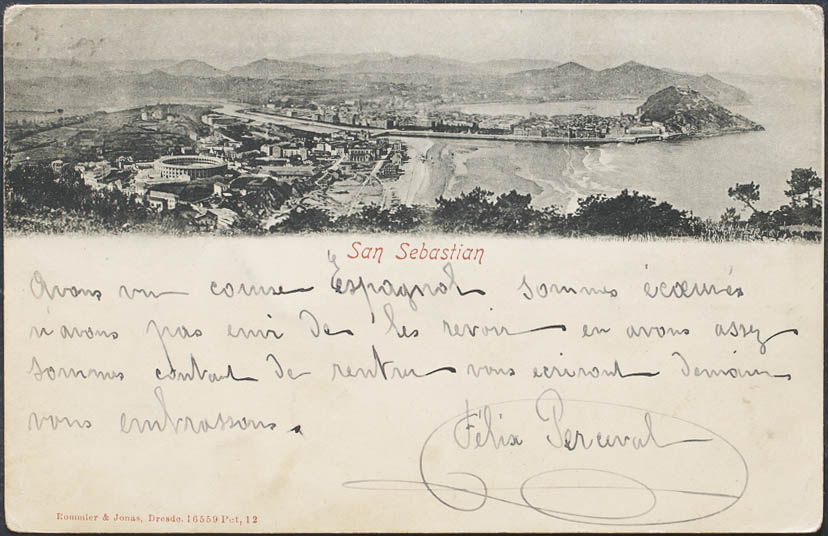 San Sebastian
Avons vu course Espagnol sommes écœurés
n'avons pas envi de les revoir en avons assez
sommes contant de rentrer vous ecriront demain
vous embrassons.
Félix Perceval
Rommler & Jonas, Dresde. 16559 Pct, 12